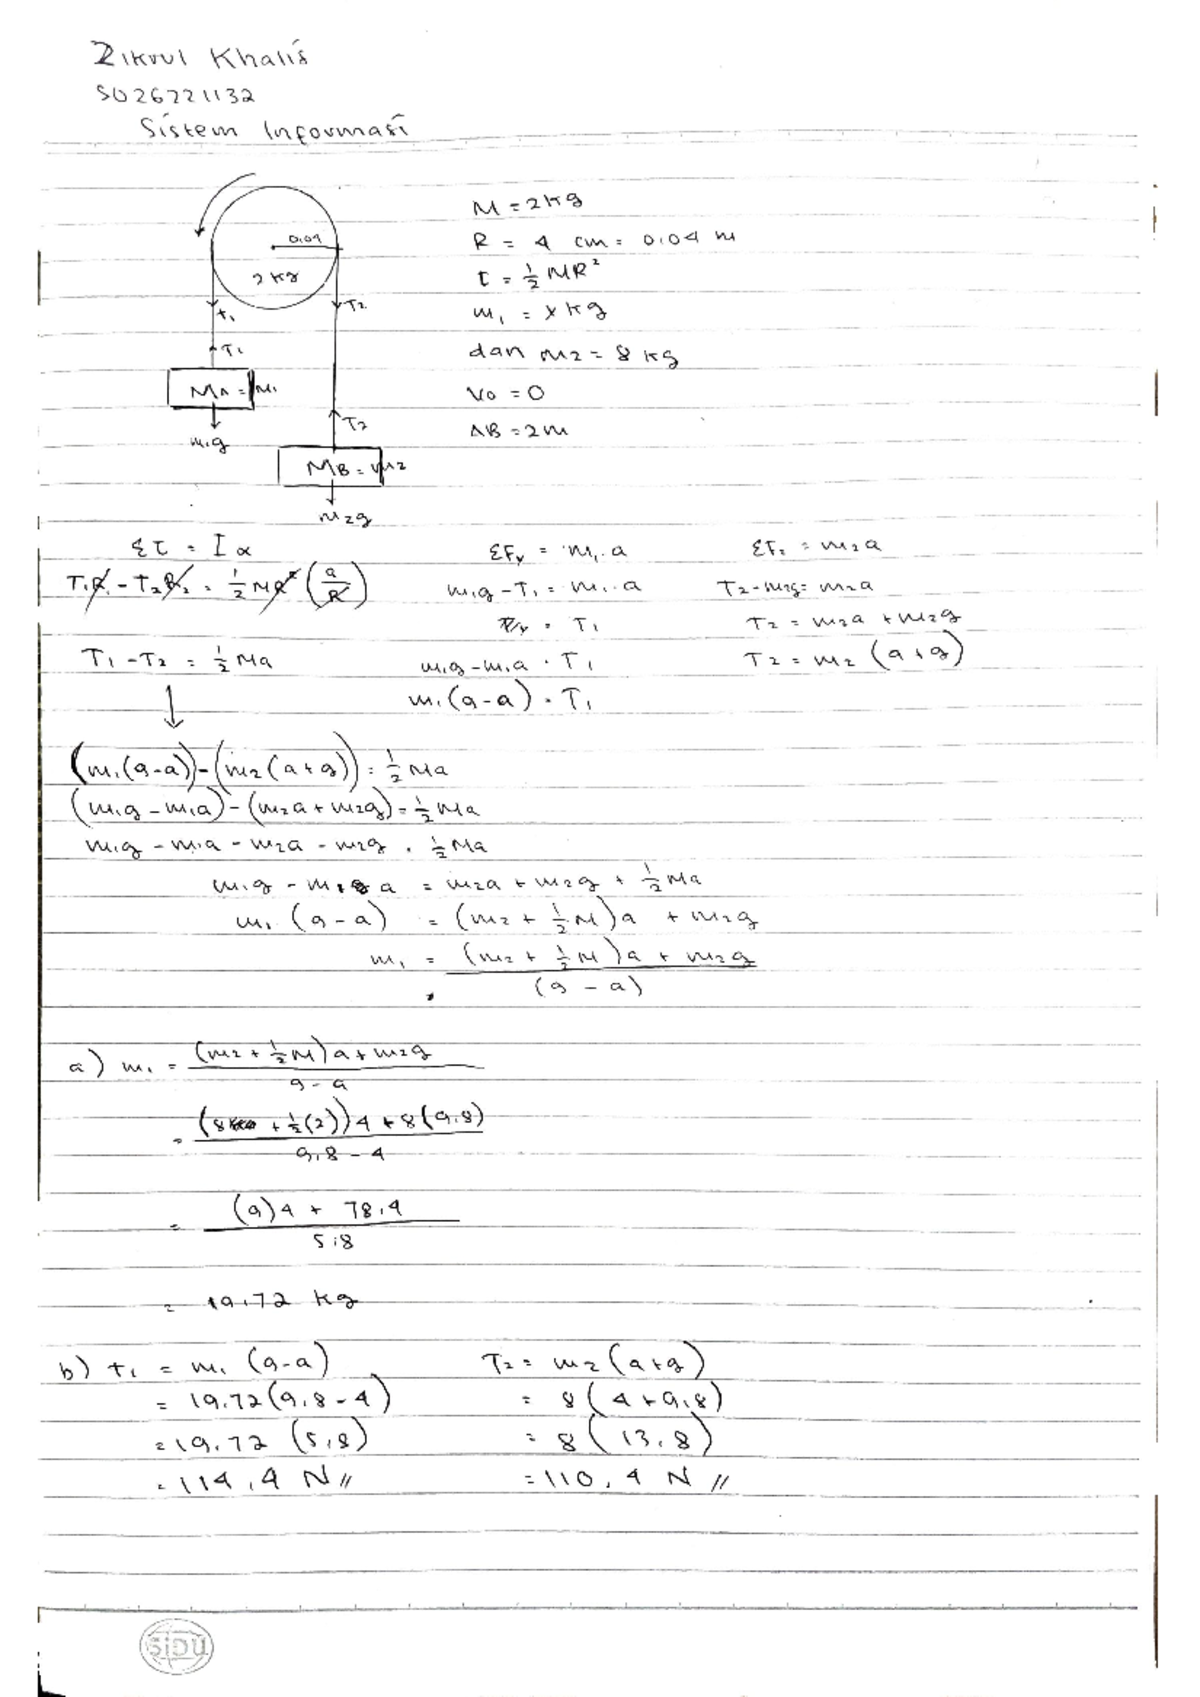 Zikrul Khalis
5026221132
Sistem Informasi
0.04
2 kg
T1
T2
T1
MA = M1
m1g
T2
MB = m2
m2g
M = 2 kg
R = 4 cm = 0.04 m
I = 1/2 MR²
m1 = x kg
dan m2 = 8 kg
V0 = 0
AB = 2m
Στ = I α
T1R1 - T2R2 = 1/2 MR² (a/R)
T1 - T2 = 1/2 Ma
ΣFy = m1 . a
m1g - T1 = m1 . a
= T1
m1g - m1a = T1
m1 (g - a) = T1
ΣF2 = m2a
T2 - m2g = m2a
T2 = m2a + m2g
T2 = m2 (a + g)
(m1 (g - a)) - (m2 (a + g)) = 1/2 Ma
(m1g - m1a) - (m2a + m2g) = 1/2 Ma
m1g - m1a - m2a - m2g = 1/2 Ma
m1g - m1 a = m2a + m2g + 1/2 Ma
m1 (g - a) = (m2 + 1/2 M) a + m2g
m1 = (m2 + 1/2 M) a + m2g
(g - a)
a) m1 = (m2 + 1/2 M) a + m2g
g - a
= (8 + 1/2 (2)) 4 + 8 (9,8)
9,8 - 4
= (9) 4 + 78,4
5,8
= 19,72 kg
b) t1 = m1 (g - a)
= 19,72 (9,8 - 4)
= 19,72 (5,8)
= 114,4 N //
T2 = m2 (a + g)
= 8 (4 + 9,8)
= 8 (13,8)
= 110,4 N //
SIDU